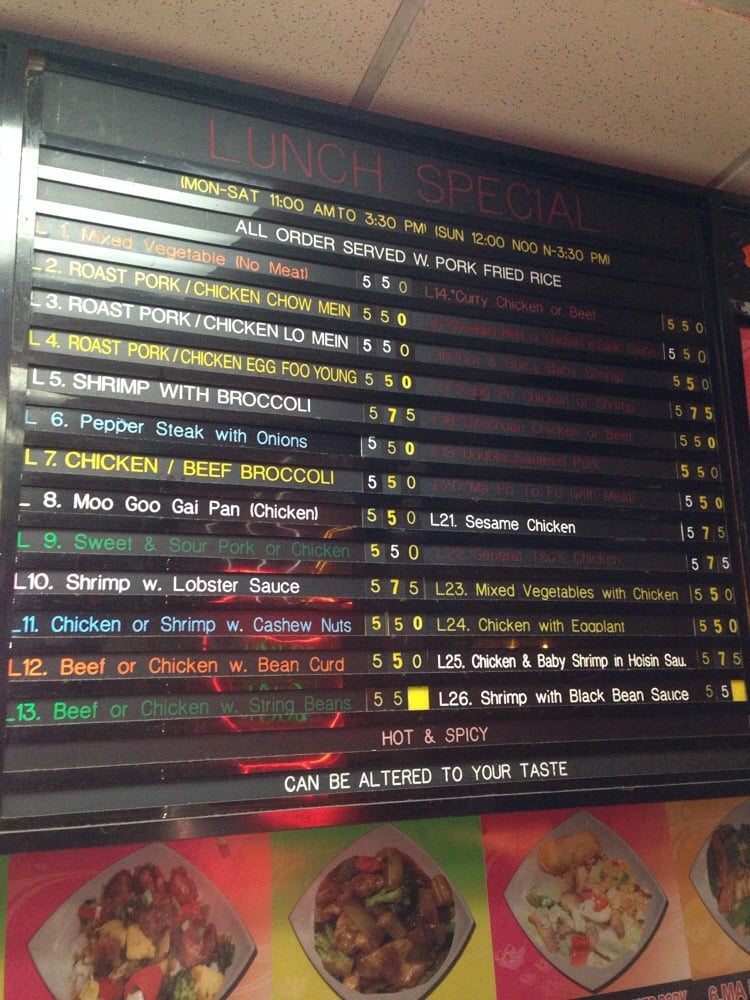 LUNCH SPECIAL
(MON-SAT 11:00 AM TO 3:30 PM) (SUN 12:00 NOO N-3:30 PM)
ALL ORDER SERVED W. PORK FRIED RICE
L 1. Mixed Vegetable (No Meat) 5 5 0
L 2. ROAST PORK / CHICKEN CHOW MEIN 5 5 0
L 3. ROAST PORK / CHICKEN LO MEIN 5 5 0
L 4. ROAST PORK / CHICKEN EGG FOO YOUNG 5 5 0
L 5. SHRIMP WITH BROCCOLI 5 7 5
L 6. Pepper Steak with Onions 5 5 0
L 7. CHICKEN / BEEF BROCCOLI 5 5 0
L 8. Moo Goo Gai Pan (Chicken) 5 5 0
L 9. Sweet & Sour Pork or Chicken 5 5 0
L10. Shrimp w. Lobster Sauce 5 7 5
L11. Chicken or Shrimp w. Cashew Nuts 5 5 0
L12. Beef or Chicken w. Bean Curd 5 5 0
L13. Beef or Chicken w. String Beans 5 5
L14.*Curry Chicken or Beef 5 5 0
5 5 0
16 Hot & Spicy Baby Shrimp 5 5 0
17 Kong Po Chicken or Shrimp 5 7 5
18 Szechuan Chicken or Beef 5 5 0
19 Double Sauteed Pork 5 5 0
L20.*Ma Po To Fu (with Meat) 5 5 0
L21. Sesame Chicken 5 7 5
L22.*General Tso's Chicken 5 7 5
L23. Mixed Vegetables with Chicken 5 5 0
L24. Chicken with Eggplant 5 5 0
L25. Chicken & Baby Shrimp in Hoisin Sau. 5 7 5
L26. Shrimp with Black Bean Sauce 5 5
HOT & SPICY
CAN BE ALTERED TO YOUR TASTE